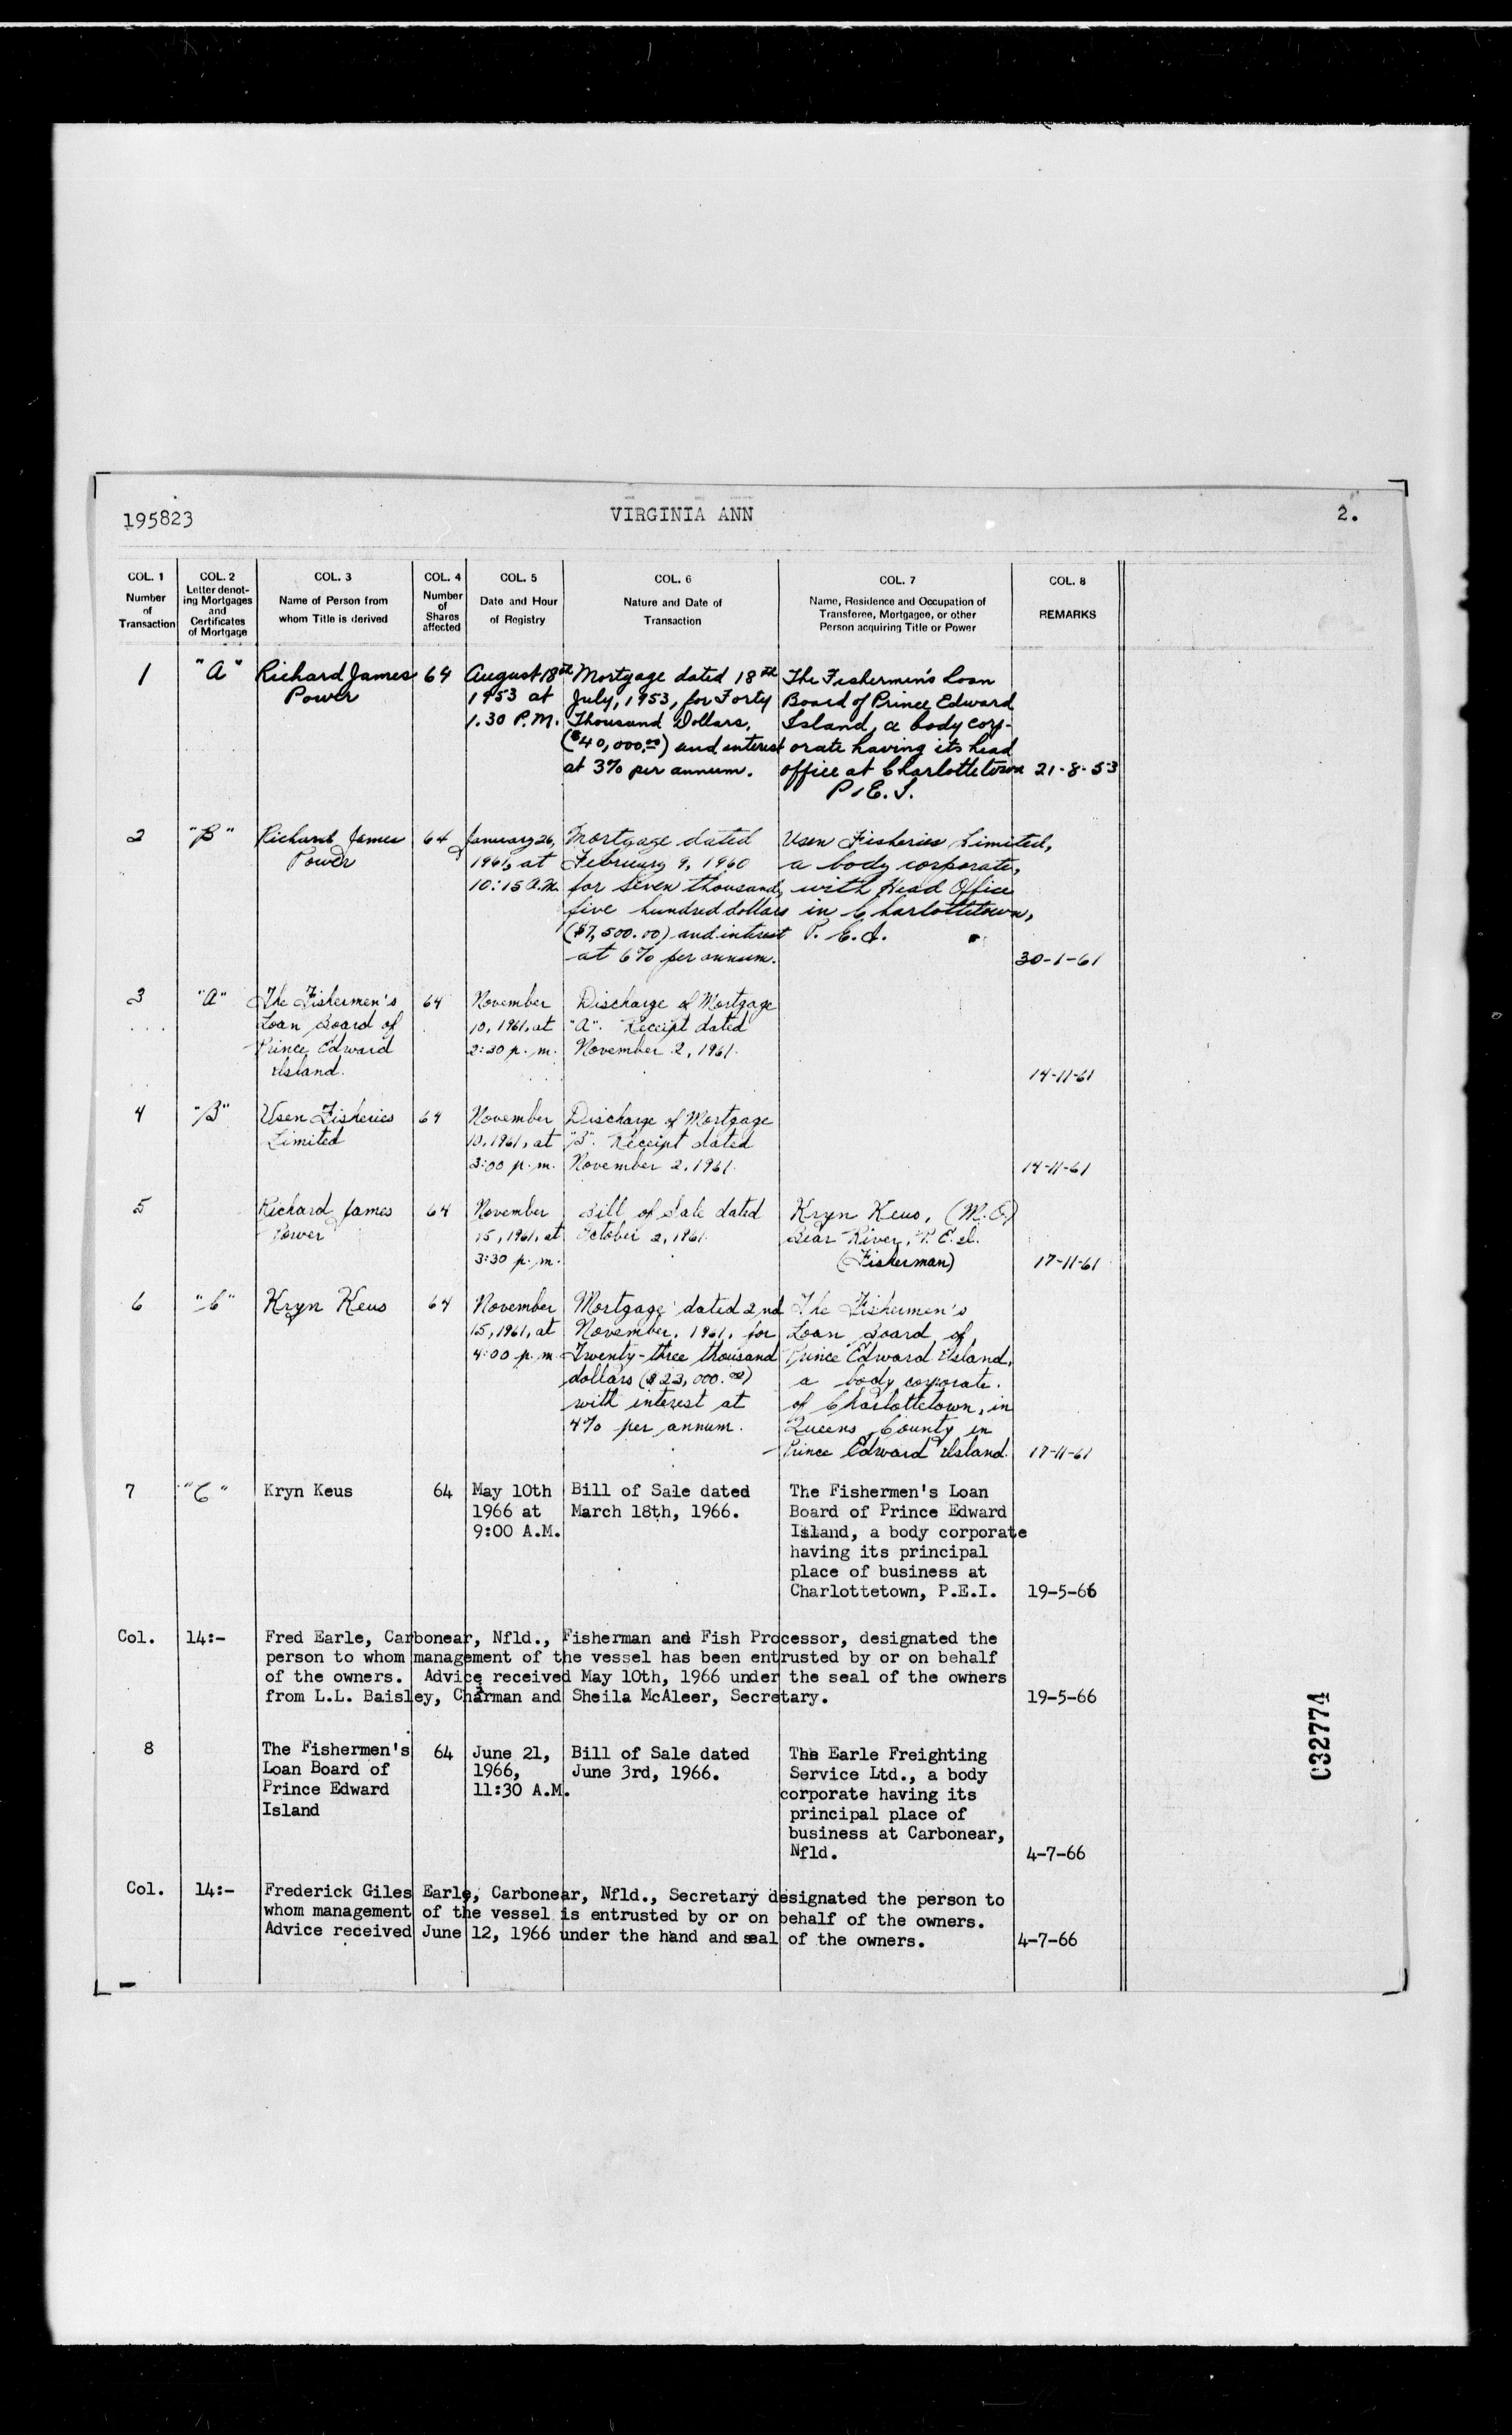 195823
VIRGINIA ANN
2.
COL. 1
Number
of
Transaction
COL. 2
Letter denot-
ing Mortgages
and
Certificates
of Mortgage
COL. 3
Name of Person from
whom Title is derived
COL. 4
Number
of
Shares
affected
COL. 5
Date and Hour
of Registry
COL. 6
Nature and Date of
Transaction
COL. 7
Name, Residence and Occupation of
Transferee, Mortgagee, or other
Person acquiring Title or Power
COL. 8
REMARKS
1
"A"
Richard James
Power
64
August 18th
1953 at
1.30 P.M.
Mortgage dated 18th
July, 1953, for Forty
Thousand Dollars,
($40,000.00) and interest
at 3% per annum.
The Fishermen's Loan
Board of Prince Edward
Island, a body corp-
orate having its head
office at Charlottetown
P.E.I.
21-8-53
2
"B"
Richard James
Power
64
January 26,
1961, at
10:15 A.M.
Mortgage dated
February 9, 1960
for seven thousand
five hundred dollars
($7,500.00) and interest
at 6% per annum.
Usen Fisheries Limited,
a body corporate,
with Head Office
in Charlottetown,
P. E. I.
30-1-61
3
"A"
The Fishermen's
Loan Board of
Prince Edward
Island.
64
November
10, 1961, at
2:30 p.m.
Discharge of Mortgage
"A". Receipt dated
November 2, 1961.
14-11-61
4
"B"
Usen Fisheries
Limited
64
November
10, 1961, at
3:00 p.m.
Discharge of Mortgage
"B". Receipt dated
November 2, 1961.
14-11-61
5
Richard James
Power
64
November
15, 1961, at
3:30 p.m.
Bill of Sale dated
October 2, 1961.
Kryn Keus, (M.O.)
Bear River, P.E.I.
(Fisherman)
17-11-61
6
"C"
Kryn Keus
64
November
15, 1961, at
4:00 p.m.
Mortgage dated 2nd
November, 1961, for
Twenty-three thousand
dollars ($23,000.00)
with interest at
4% per annum.
The Fishermen's
Loan Board of
Prince Edward Island,
a body corporate.
of Charlottetown, in
Queens County in
Prince Edward Island.
17-11-61
7
"C"
Kryn Keus
64
May 10th
1966 at
9:00 A.M.
Bill of Sale dated
March 18th, 1966.
The Fishermen's Loan
Board of Prince Edward
Island, a body corporate
having its principal
place of business at
Charlottetown, P.E.I.
19-5-66
Col. 14:- Fred Earle, Carbonear, Nfld., Fisherman and Fish Processor, designated the
person to whom management of the vessel has been entrusted by or on behalf
of the owners. Advice received May 10th, 1966 under the seal of the owners
from L.L. Baisley, Charman and Sheila McAleer, Secretary.
19-5-66
8
The Fishermen's
Loan Board of
Prince Edward
Island
64
June 21,
1966,
11:30 A.M.
Bill of Sale dated
June 3rd, 1966.
The Earle Freighting
Service Ltd., a body
corporate having its
principal place of
business at Carbonear,
Nfld.
4-7-66
Col. 14:- Frederick Giles Earle, Carbonear, Nfld., Secretary designated the person to
whom management of the vessel is entrusted by or on behalf of the owners.
Advice received June 12, 1966 under the hand and seal of the owners.
4-7-66
C32774